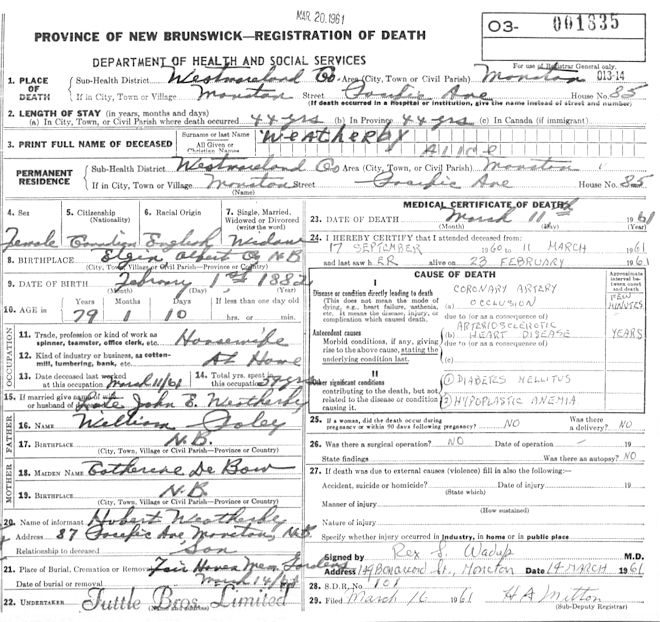 MAR 20 1961
O3- 001335
PROVINCE OF NEW BRUNSWICK—REGISTRATION OF DEATH
DEPARTMENT OF HEALTH AND SOCIAL SERVICES
For use of Registrar General only.
013-14
1. PLACE OF DEATH
Sub-Health District Westmoreland Co Area (City, Town or Civil Parish) Moncton
If in City, Town or Village Moncton Street Pacific Ave House No. 85
(If death occurred in a hospital or institution, give the name instead of street and number)
2. LENGTH OF STAY (in years, months and days)
(a) In City, Town or Civil Parish where death occurred 44 yrs (b) In Province 44 yrs (c) In Canada (if immigrant)
3. PRINT FULL NAME OF DECEASED
Surname or last Name WEATHERBY
All Given or Christian Names ALICE
PERMANENT RESIDENCE
Sub-Health District Westmoreland Co Area (City, Town, or Civil Parish) Moncton
If in City, Town or Village Moncton Street Pacific Ave House No. 85
(Name)
4. Sex 5. Citizenship (Nationality) 6. Racial Origin 7. Single, Married, Widowed or Divorced (write the word)
Female Canadian English Widow
8. BIRTHPLACE Elgin Albert Co N.B
(City, Town, Village or Civil Parish—Province or Country)
9. DATE OF BIRTH February 1st 1882
(Month) (Day) (Year)
10. AGE in Years Months Days If less than one day old
79 1 10 hrs. or min.
OCCUPATION
11. Trade, profession or kind of work as spinner, teamster, office clerk, etc. Housewife
12. Kind of industry or business, as cotton-mill, lumbering, bank, etc. At Home
13. Date deceased last worked at this occupation March 11/61 14. Total yrs. spent in this occupation
15. If married give name of wife or husband of Late John E. Weatherby
FATHER
16. NAME William Foley
17. BIRTHPLACE N.B.
(City, Town, Village or Civil Parish—Province or Country)
MOTHER
18. MAIDEN NAME Catherine De Bow
19. BIRTHPLACE N.B.
(City, Town, Village or Civil Parish—Province or Country)
20. Name of informant Hubert Weatherby
Address 87 Pacific Ave Moncton, N.B.
Relationship to deceased Son
21. Place of Burial, Cremation or Removal Fair Haven Mem. Gardens
Date of burial or removal March 14/61
22. UNDERTAKER Tuttle Bros. Limited
(Name and address)
MEDICAL CERTIFICATE OF DEATH
23. DATE OF DEATH March 11th 1961
(Month) (Day) (Year)
24. I HEREBY CERTIFY that I attended deceased from:
17 SEPTEMBER 1960 to 11 MARCH 1961
and last saw hER alive on 23 FEBRUARY 1961
CAUSE OF DEATH
Approximate interval between onset and death
I
Disease or condition directly leading to death
(This does not mean the mode of dying, e.g., heart failure, asthenia, etc. It means the disease, injury, or complication which caused death.
(a) CORONARY ARTERY OCCLUSION FEW MINUTES
due to (or as a consequence of)
Antecedent causes
Morbid conditions, if any, giving rise to the above cause, stating the underlying condition last.
(b) ARTERIOSCLEROTIC HEART DISEASE YEARS
due to (or as a consequence of)
(c)
II
Other significant conditions contributing to the death, but not related to the disease or condition causing it.
① DIABETES MELLITUS
② HYPOPLASTIC ANEMIA
25. If a woman, did the death occur during pregnancy or within 90 days following pregnancy? NO Was there a delivery? NO
26. Was there a surgical operation? NO Date of operation - 19
State findings Was there an autopsy? NO
27. If death was due to external causes (violence) fill in also the following:—
Accident, suicide or homicide? Date of injury 19
(State which)
Manner of injury
(How sustained)
Nature of injury
Specify whether injury occurred in industry, in home or in public place
Signed by M.D.
Address Bonaccord St., Moncton Date 14 MARCH 1961
28. S.D.R. No. 101
29. Filed March 16 1961 H A Mitton
(Sub-Deputy Registrar)